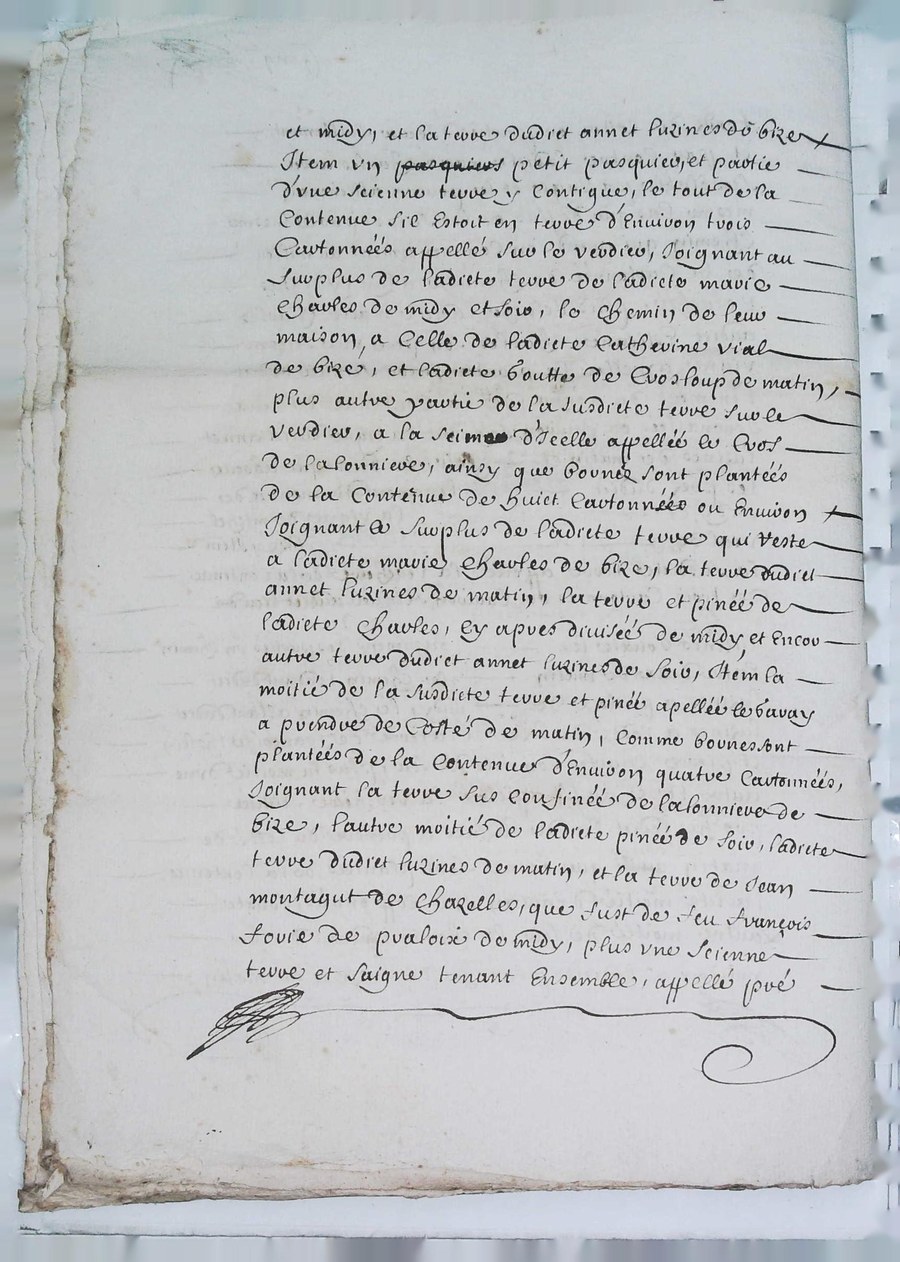 et midy, et la terre dudict annet luzines de bize
Item vn pasquiers petit pasquier, et partie
d'vne scienne terre y Contigue, le tout de la
Contenue s'il Estoit en terre d'Environ trois
Cartonnées appellé sur le verdier, Joignant au
surplus de ladicte terre de ladicte marie
Charles de midy et soir, le Chemin de leur
maison, a Celle de ladicte Catherine vial
de bize, et ladicte boutte de Cros loup de matin,
plus autre partie de la susdicte terre sur le
verdier, a la seime d'Icelle appellée le Cros
de lalonniere, ainsy que bornes sont plantées
de la Contenue de huict Cartonnées ou Environ
Joignant Le surplus de ladicte terre qui reste
a ladicte marie Charles de bize, la terre dudict
annet luzines de matin, la terre et pinée de
ladicte Charles, Cy apres divisée de midy, et Encor
autre terre dudict annet luzines de soir, Item la
moitié de la susdicte terre et pinée apellée le baray
a prendre de Costé de matin, Comme bornes sont
plantées de la Contenue d'Environ quatre Cartonnées,
Joignant la terre sus Confinée de lalonniere de
bize, l'autre moitié de ladicte pinée de soir, ladicte
terre dudict luzines de matin, et la terre de Jean
montagut de Chazelles, que fust de feu françois
forie de praloix de midy, plus vne scienne
terre et saigne tenant Ensemble, appellé pré